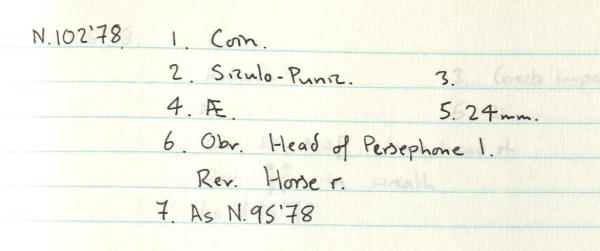 N.102'78 1. Coin.
2. Siculo-Punic. 3.
4. Æ. 5. 24mm.
6. Obv. Head of Persephone l.
Rev. Horse r.
7. As N.95'78